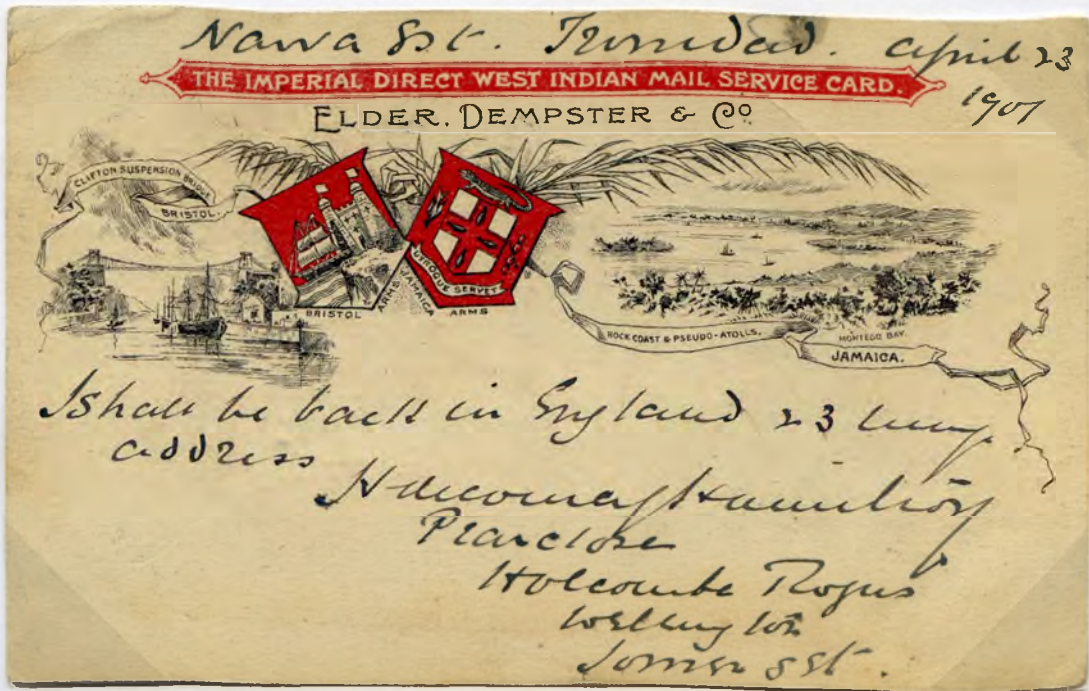 Nawa Est. Trinidad. april 23
1907
THE IMPERIAL DIRECT WEST INDIAN MAIL SERVICE CARD.
ELDER, DEMPSTER & Co.
CLIFTON SUSPENSION BRIDGE
BRISTOL.
UTROQUE SERVIET
BRISTOL ARMS
JAMAICA ARMS
ROCK COAST & PSEUDO-ATOLLS,
MONTEGO BAY.
JAMAICA.
I shall be back in England 23
address
Hamilton
Holcombe Rogus
Wellington
Somerset.